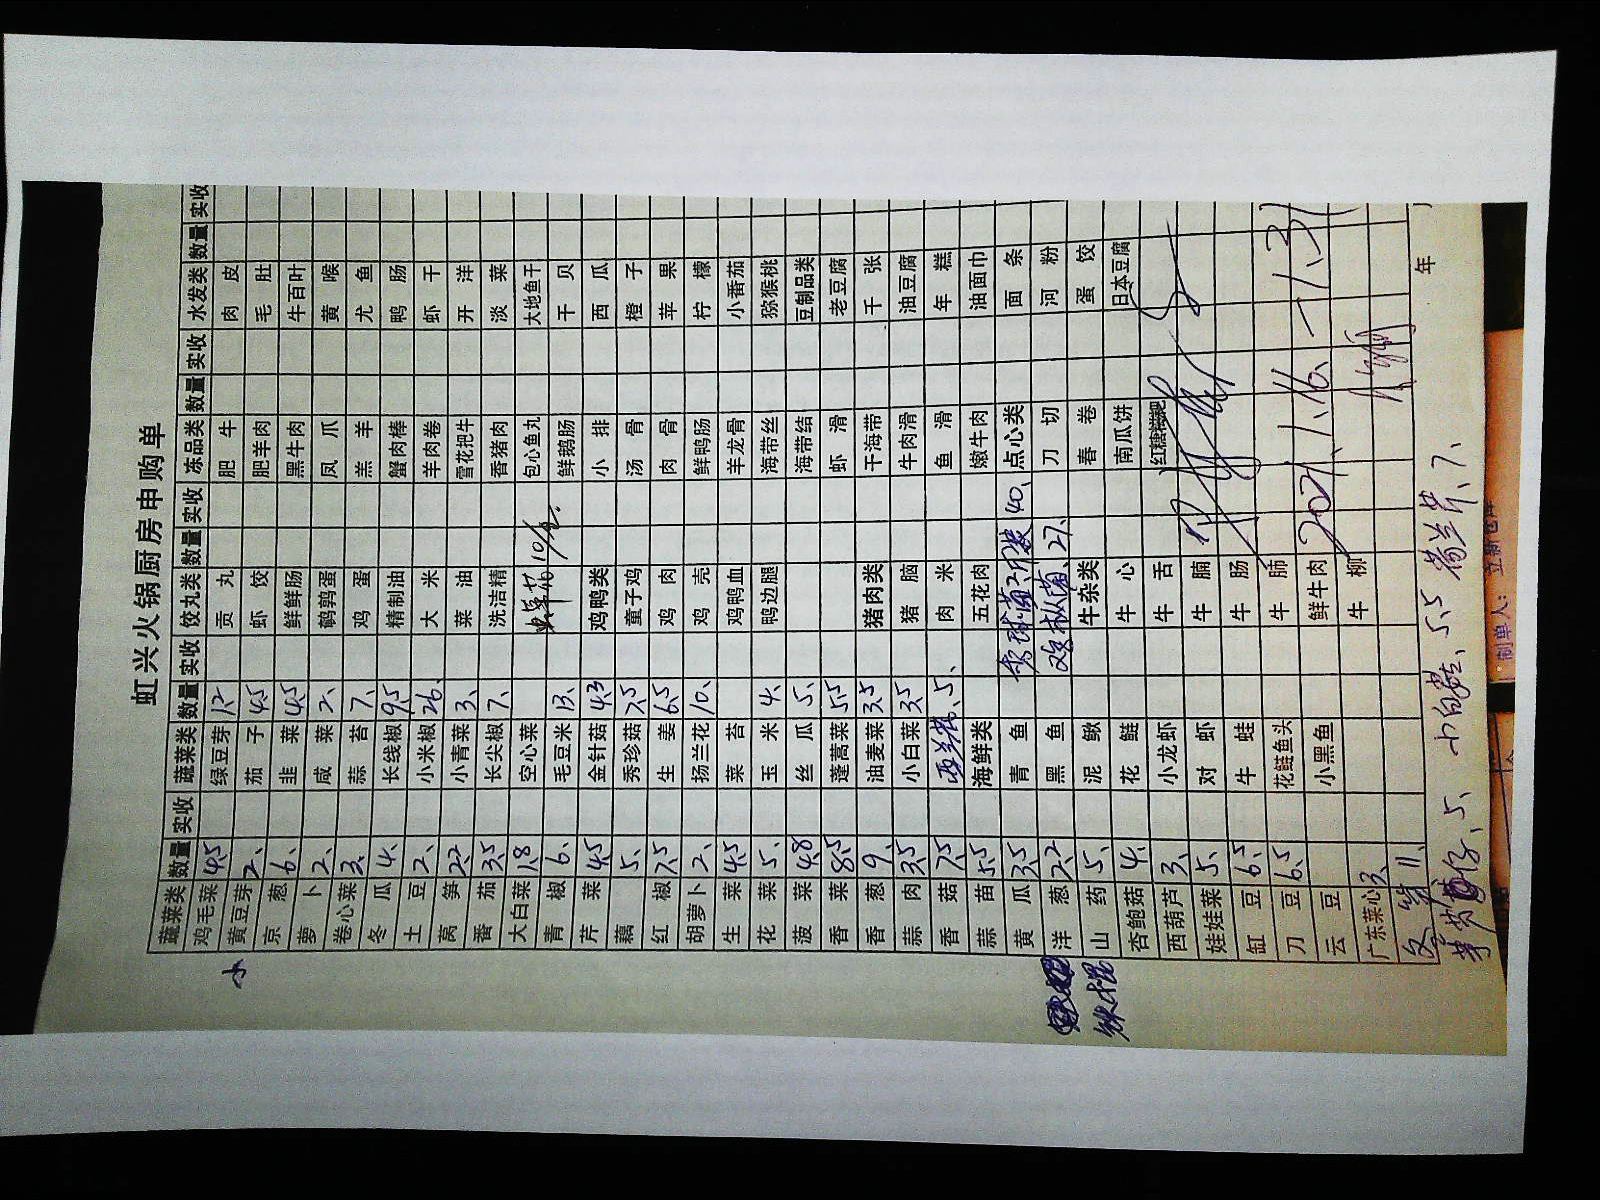 虹兴火锅厨房申购单
蔬菜类 数量 实收 蔬菜类 数量 实收 饺丸类 数量 实收 冻品类 数量 实收 水发类 数量 实收
鸡毛菜 4.5 绿豆芽 贡丸 肥牛 肉皮
黄豆芽 2、 茄子 4.5 虾饺 肥羊肉 毛肚
京葱 6、 韭菜 4.5 鲜鲜肠 黑牛肉 牛百叶
萝卜 2、 咸菜 2、 鹌鹑蛋 凤爪 黄喉
卷心菜 3、 蒜苔 7、 鸡蛋 羔羊 尤鱼
冬瓜 4、 长线椒 9.5 精制油 蟹肉棒 鸭肠
土豆 2、 小米椒 26、 大米 羊肉卷 虾干
莴笋 2.2 小青菜 3、 菜油 雪花把牛 开洋
番茄 3.5 长尖椒 7、 洗洁精 香猪肉 淡菜
大白菜 1.8 空心菜 包心鱼丸 大地鱼干
青椒 6、 毛豆米 13、 鲜鹅肠 干贝
芹菜 4.5 金针菇 4.3 鸡鸭类 小排 西瓜
藕 5、 秀珍菇 7.5 童子鸡 汤骨 橙子
红椒 7.5 生姜 6.5 鸡肉 肉骨 苹果
胡萝卜 2、 扬兰花 10、 鸡壳 鲜鸭肠 柠檬
生菜 4.5 菜苔 鸡鸭血 羊龙骨 小番茄
花菜 5、 玉米 4、 鸭边腿 海带丝 猕猴桃
菠菜 4.8 丝瓜 5、 海带结 豆制品类
香菜 8.5 蓬蒿菜 5.5 虾滑 老豆腐
香葱 9、 油麦菜 3.5 猪肉类 干海带 千张
蒜肉 3.5 小白菜 3.5 猪脑 牛肉滑 油豆腐
香菇 7.5 5、 肉米 鱼滑 年糕
蒜苗 5.5 海鲜类 五花肉 嫩牛肉 油面巾
黄瓜 3.5 青鱼 40、 点心类 面条
洋葱 2.2 黑鱼 鸡枞菌 27、 刀切 河粉
山药 5、 泥鳅 牛杂类 春卷 蛋饺
杏鲍菇 4、 花鲢 牛心 南瓜饼 日本豆腐
西葫芦 3、 小龙虾 牛舌 红糖糍粑
娃娃菜 5、 对虾 牛腩
缸豆 6.5 牛蛙 牛肠
刀豆 6.5 花鲢鱼头 牛肺
云豆 小黑鱼 鲜牛肉 2021.1.16.
广东菜心 3、 牛柳
11、
5、 5.5 7、
年
制单人：